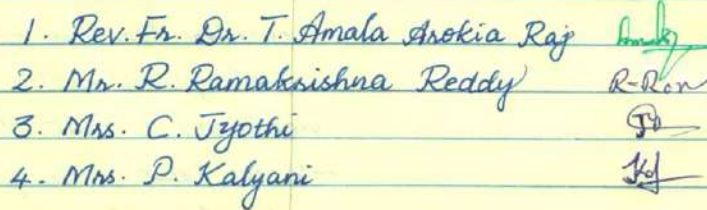 1. Rev. Fr. Dr. T. Amala Arokia Raj
2. Mr. R. Ramakrishna Reddy
3. Mrs. C. Jyothi
4. Mrs. P. Kalyani